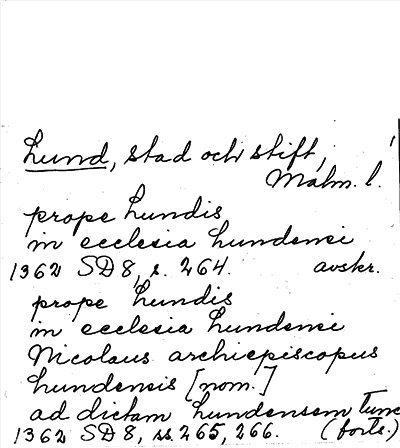 Lund, stad och stift,
Malm. l.
prope Lundis
in ecclesia Lundensi
1362 SD 8, s. 264. avskr.
prope Lundis
in ecclesia Lundensi
Nicolaus archiepiscopus
Lundensis [nom.]
ad dictam Lundensem tunc
1362 SD 8, ss 265, 266. (forts.)